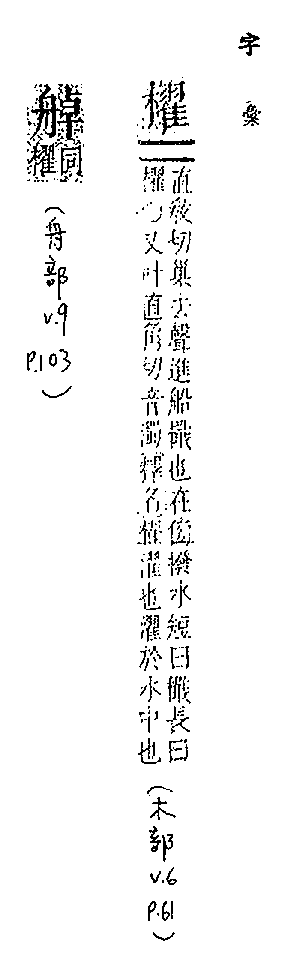 字彙
櫂
直敎切巢去聲進船檝也在㫄撥水短曰檝長曰
櫂又叶直角切音濁釋名櫂濯也濯於水中也
(木部
v.6
P.61)
䑲
同櫂
(舟部
v.9
P.103)